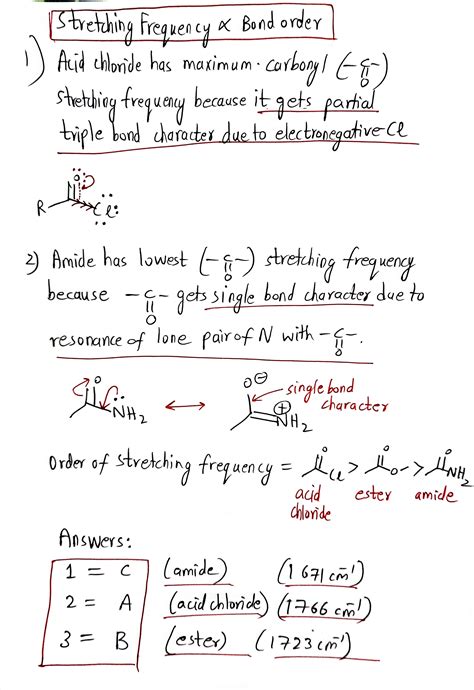 Stretching Frequency ∝ Bond order
1) Acid chloride has maximum carbonyl (-C-)
O
Stretching frequency because it gets partial
triple bond character due to electronegative Cl
:O:
R Cl:
2) Amide has lowest (-C-) stretching frequency
O
because -C- gets single bond character due to
O
resonance of lone pair of N with -C-.
O
O NH2 ↔ O⊖ ⊕NH2 single bond
character
Order of stretching frequency = O Cl > O O- > O NH2
acid ester amide
chloride
Answers:
1 = C (amide) (1671 cm⁻¹)
2 = A (acid chloride) (1766 cm⁻¹)
3 = B (ester) (1723 cm⁻¹)